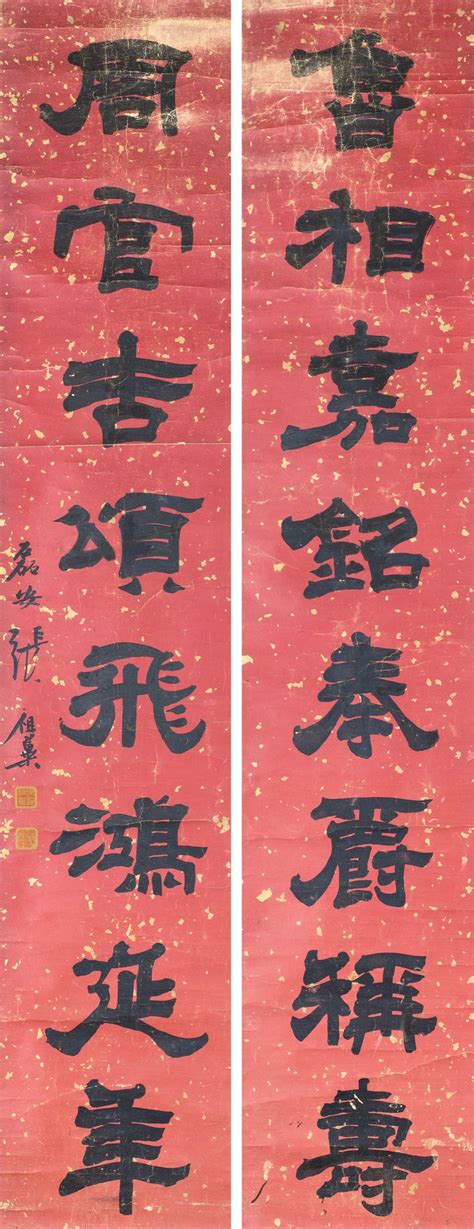 魯相嘉銘奉爵稱壽
周官吉頌飛鴻延年
磊安張祖翼